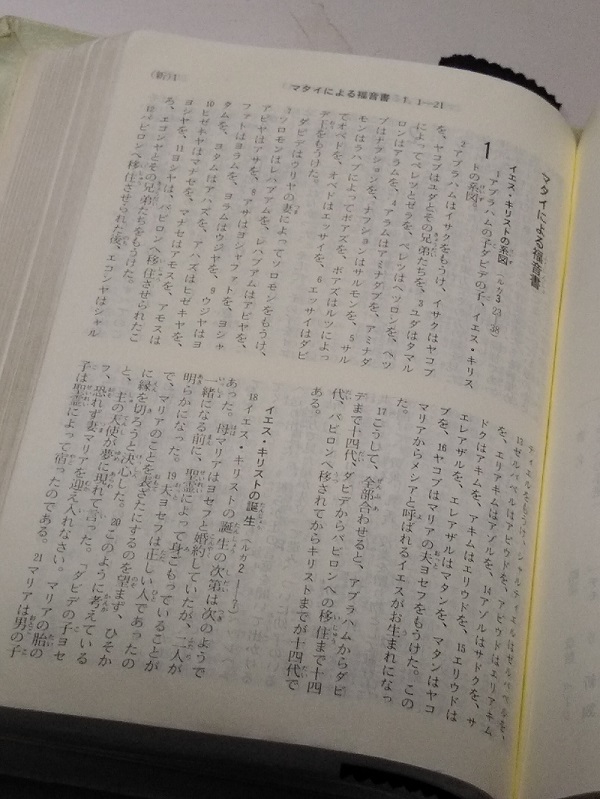 (新)1
マタイによる福音書 1, 1—21
マタイによる福音書
イエス・キリストの系図 (ルカ3 23—38)
1
1アブラハムの子ダビデの子、イエス・キリス
トの系図。
2アブラハムはイサクをもうけ、イサクはヤコブ
を、ヤコブはユダとその兄弟たちを、3ユダはタマル
によってペレツとゼラを、ペレツはヘツロンを、ヘツ
ロンはアラムを、4アラムはアミナダブを、アミナダ
ブはナフションを、ナフションはサルモンを、5サル
モンはラハブによってボアズを、ボアズはルツによっ
てオベドを、オベドはエッサイを、6エッサイはダビ
デ王をもうけた。
ダビデはウリヤの妻によってソロモンをもうけ、
7ソロモンはレハブアムを、レハブアムはアビヤを、
アビヤはアサを、8アサはヨシャファトを、ヨシャ
ファトはヨラムを、ヨラムはウジヤを、9ウジヤはヨ
タムを、ヨタムはアハズを、アハズはヒゼキヤを、
10ヒゼキヤはマナセを、マナセはアモスを、アモスは
ヨシヤを、11ヨシヤは、バビロンへ移住させられたこ
ろ、エコンヤとその兄弟たちをもうけた。
12バビロンへ移住させられた後、エコンヤはシャル
ティエルをもうけ、シャルティエルはゼルバベルを、
13ゼルバベルはアビウドを、アビウドはエリアキム
を、エリアキムはアゾルを、14アゾルはサドクを、サ
ドクはアキムを、アキムはエリウドを、15エリウドは
エレアザルを、エレアザルはマタンを、マタンはヤコ
ブを、16ヤコブはマリアの夫ヨセフをもうけた。この
マリアからメシアと呼ばれるイエスがお生まれになっ
た。
17こうして、全部合わせると、アブラハムからダビ
デまで十四代、ダビデからバビロンへの移住まで十四
代、バビロンへ移されてからキリストまでが十四代で
ある。
イエス・キリストの誕生 (ルカ2 1—7)
18イエス・キリストの誕生の次第は次のようで
あった。母マリアはヨセフと婚約していたが、二人が
一緒になる前に、聖霊によって身ごもっていることが
明らかになった。19夫ヨセフは正しい人であったの
で、マリアのことを表ざたにするのを望まず、ひそか
に縁を切ろうと決心した。20このように考えている
と、主の天使が夢に現れて言った。「ダビデの子ヨセ
フ、恐れず妻マリアを迎え入れなさい。マリアの胎の
子は聖霊によって宿ったのである。21マリアは男の子